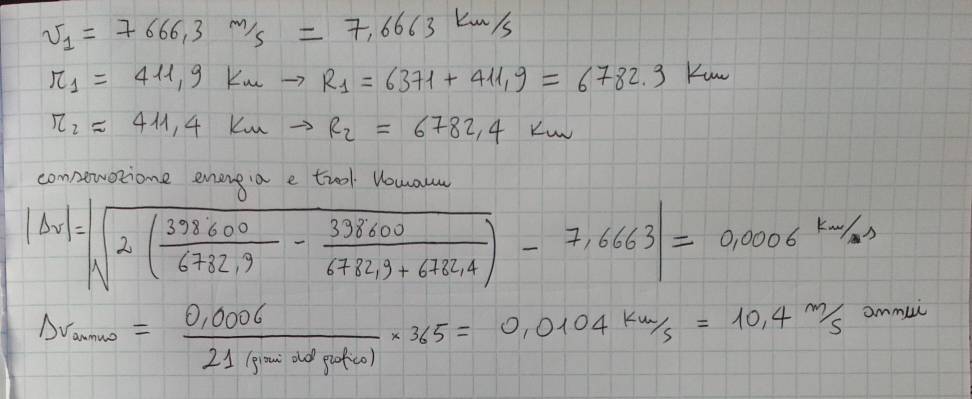 v₁ = 7666,3 m/s = 7,6663 Km/s
r₁ = 411,9 Km → R₁ = 6371 + 411,9 = 6782.9 Km
r₂ = 411,4 Km → R₂ = 6782,4 Km
conservazione energia e trasf. Homann
|Δv| = |√(2 (398'600/6782,9 - 398600/(6782,9 + 6782,4))) - 7,6663| = 0,0006 Km/s
Δv annuo = 0,0006/21 (giorni dal grafico) × 365 = 0,0104 Km/s = 10,4 m/s annui